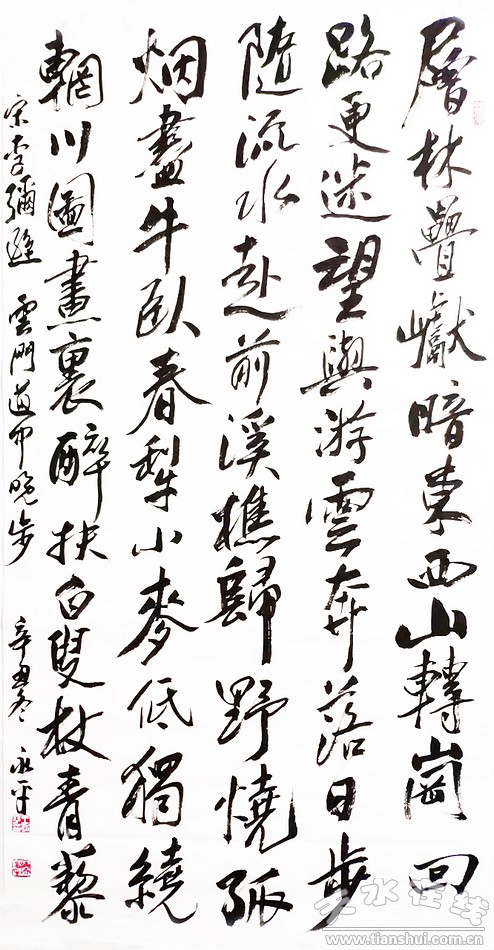 層林疊巘暗東西山轉崗回
路更迷望與游雲奔落日步
隨流水赴前溪樵歸野燒孤
烟盡牛臥春犁小麥低獨繞
輞川圖畫裏醉扶白叟杖青藜
宋李彌遜 雲門道中晚步 辛丑冬 永平
天水在线
www.tianshui.com.cn